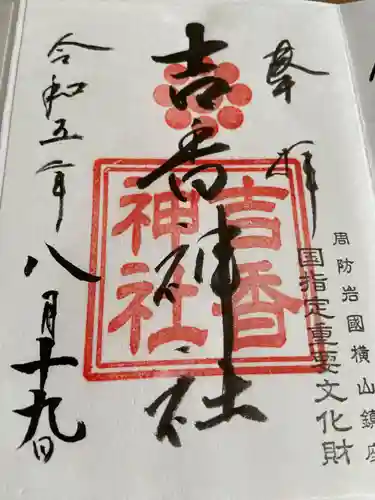 奉拝
周防岩國横山鎮座
国指定重要文化財
吉香神社
吉香
神社
令和五年
八月十九日